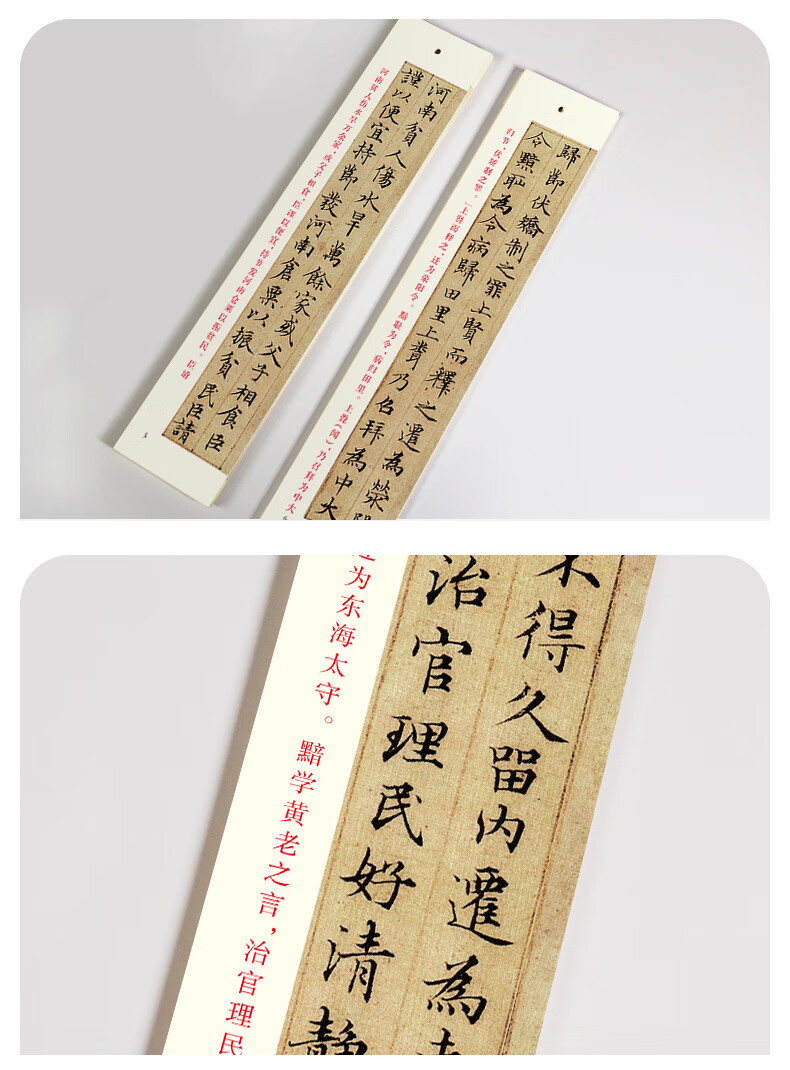 河南貧人傷水旱萬餘家或父子相食臣
謹以便宜持節發河南倉粟以振貧民臣請
河南贫人伤水旱万余家,或父子相食,臣谨以便宜,持节发河南仓粟以振贫民。臣请
5
歸節伏矯制之罪上賢而釋之遷為滎
令黯恥為令病歸田里上䎽乃召拜為中大
归节,伏矫制之罪。”上贤而释之,迁为荥阳令。黯耻为令,病归田里。上䎽(闻),乃召拜为中大
6
不得久留内遷為
治官理民好清靜
迁为东海太守。黯学黄老之言,治官理民